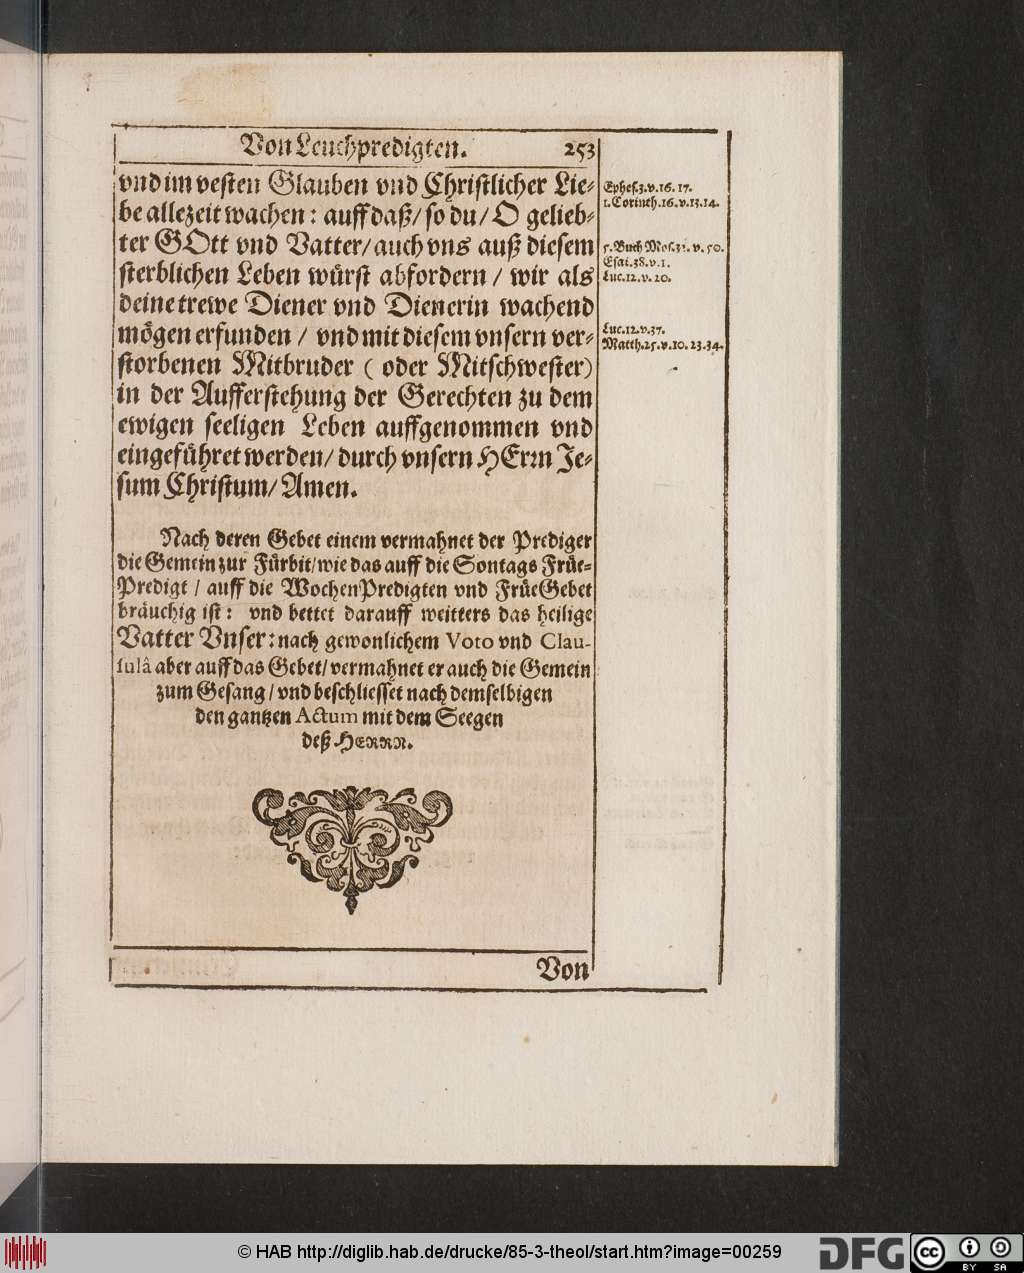 Von Leuchpredigten. 253
vnd im vesten Glauben vnd Christlicher Lie-
be allezeit wachen: auff daß/ so du/ O gelieb-
ter GOtt vnd Vatter/ auch vns auß diesem
sterblichen Leben würst abfordern/ wir als
deine trewe Diener vnd Dienerin wachend
mögen erfunden/ vnd mit diesem vnsern ver-
storbenen Mitbruder ( oder Mitschwester)
in der Aufferstehung der Gerechten zu dem
ewigen seeligen Leben auffgenommen vnd
eingeführet werden/ durch vnsern HErrn Je-
sum Christum/ Amen.
Ephes.3.v.16.17.
1.Corinth.16.v.13.14.
5.Buch Mos.32.v.50.
Esai.38.v.1.
Luc.12.v.20.
Luc.12.v.37.
Matth.25.v.10.23.34.
Nach deren Gebet einem vermahnet der Prediger
die Gemein zur Fürbit/ wie das auff die Sontags Früe-
Predigt/ auff die WochenPredigten vnd FrüeGebet
bräuchig ist: vnd bettet darauff weitters das heilige
Vatter Vnser: nach gewonlichem Voto vnd Clau-
sulâ aber auff das Gebet/ vermahnet er auch die Gemein
zum Gesang/ vnd beschliesset nach demselbigen
den gantzen Actum mit dem Seegen
deß HERRN.
Von
© HAB http://diglib.hab.de/drucke/85-3-theol/start.htm?image=00259
DFG
cc BY SA